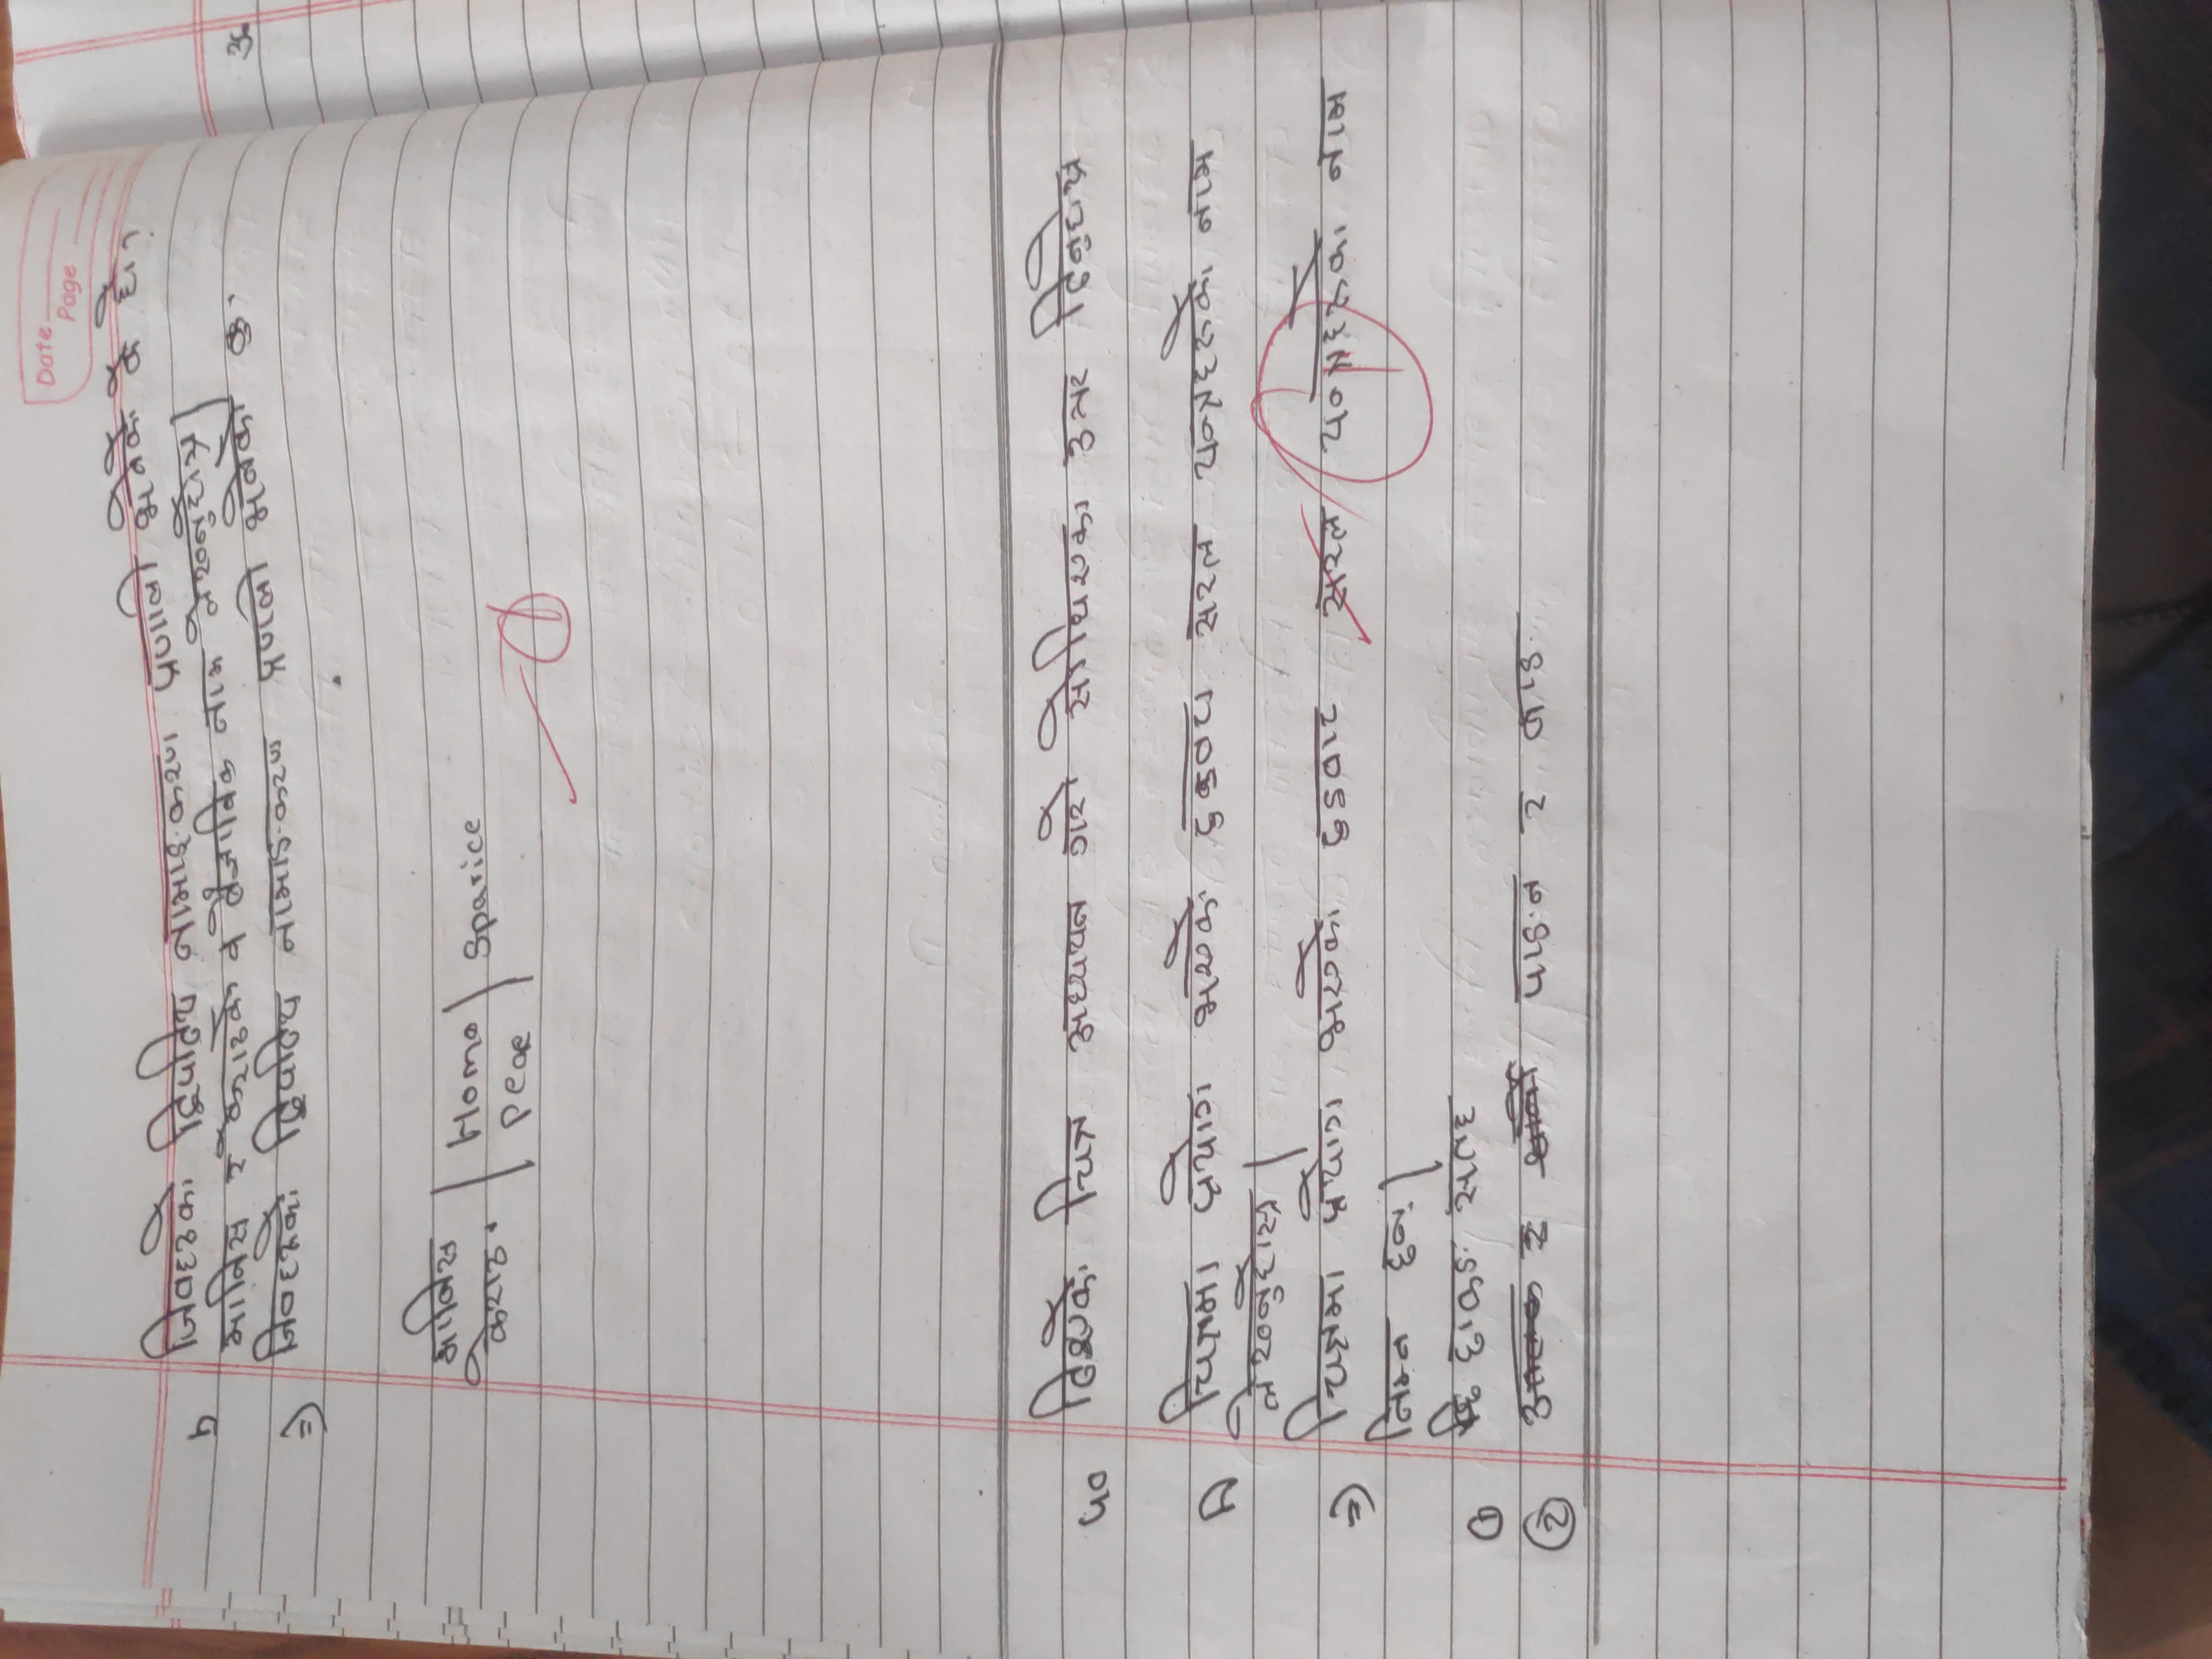 Date
Page
जिवहरुको द्विपदिय नामाङ्करण प्रणाली भनेको के हो?
मानिस र केराउको व वैज्ञानिक नाम लेख्नुहोस्।
=) जिवहरुको द्विपदिय नामाङ्करण प्रणली भनेको कु
मानिस | Homo | Sparice
केराउ | Peae |
५० दिइएको चित्र अध्ययन गरी सोधिएका उत्तर दिनुहोस्
चित्रमा प्रयोग भएको दुइवटा सरल यन्त्रहरुको नाम
लेख्नुहोस्।
=) चित्रमा प्रयोग भएको दुइवाट सरल यन्त्रहरुको नाम
निम्न हुन्।
① छड्के सतह
② पाङ्ग्रा र